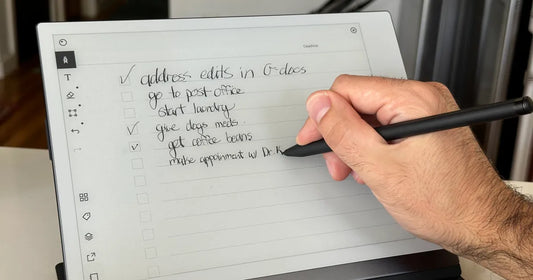 address edits in G-docs
go to post office
start laundry
give dogs meds.
get coffee beans
make appoinment w/ Dr. K
T